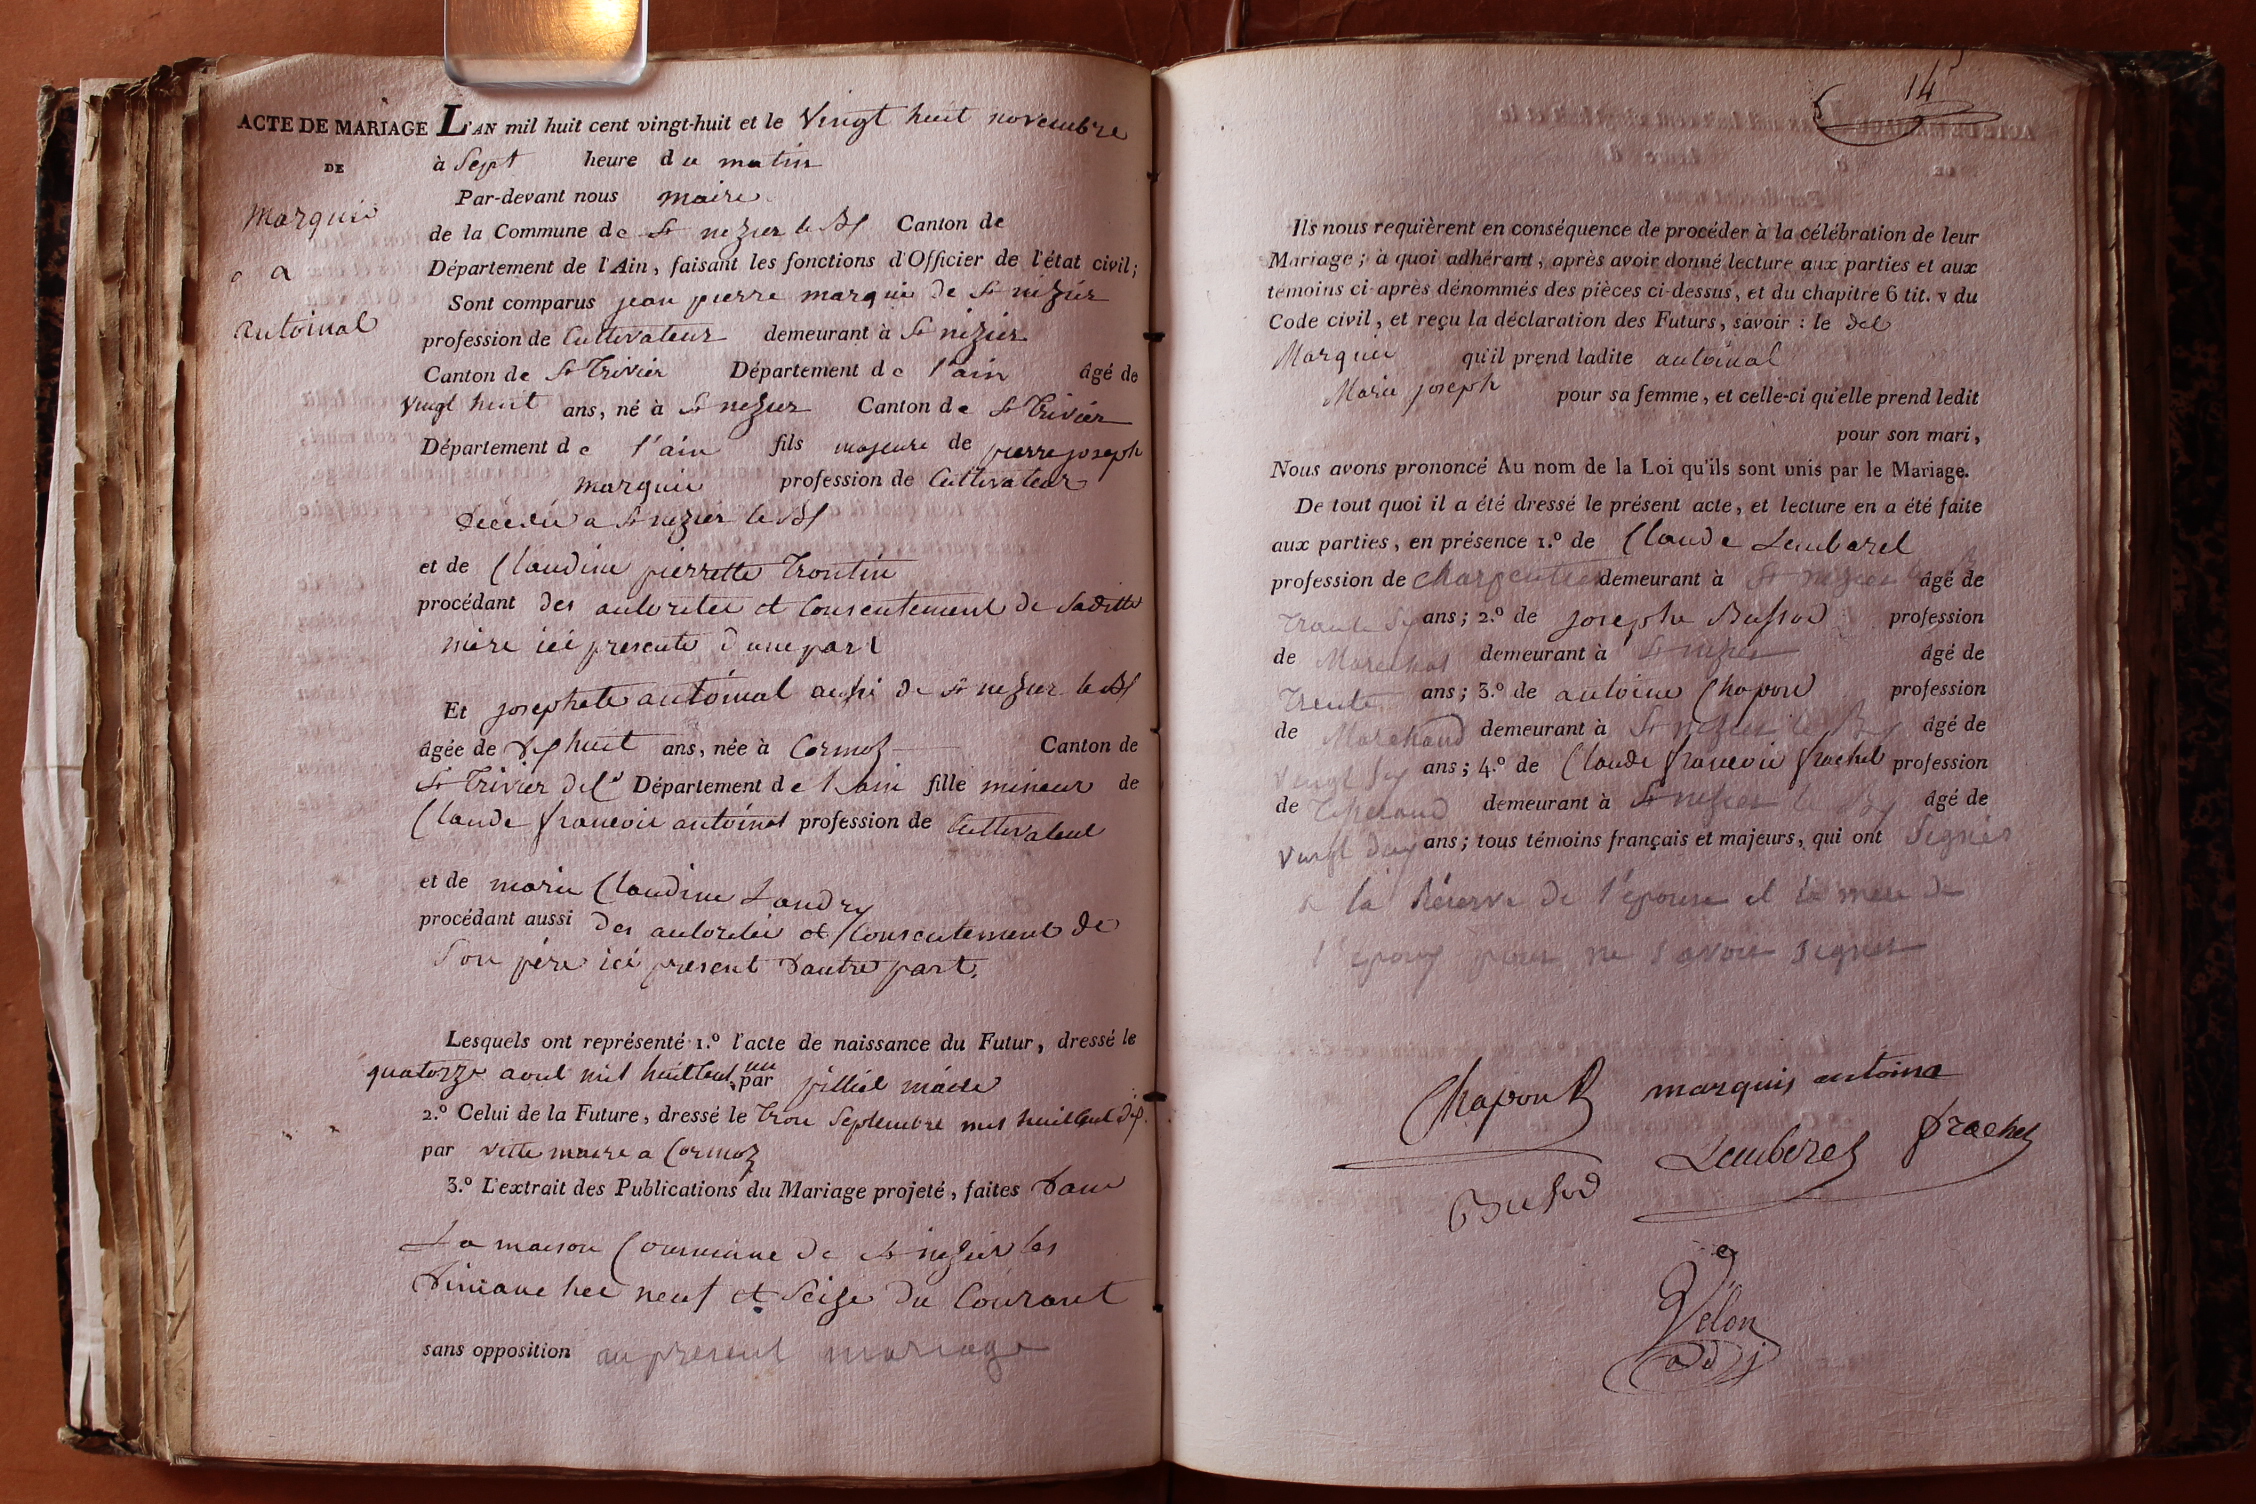 ACTE DE MARIAGE L'AN mil huit cent vingt-huit et le Vingt huit novembre
DE à Sept heure du matin
Par-devant nous maire
Marquis
de la Commune de St nezier le Bt Canton de
a
Département de l'Ain, faisant les fonctions d'Officier de l'état civil;
Sont comparus jean pierre marquis de St nizier
antoinat
profession de Cultivateur demeurant à St nizier
Canton de St Trivier Département de l'ain âgé de
Vingt huit ans, né à St nezier Canton de St Trivier
Département de l'ain fils majeure de pierre joseph
marquis profession de Cultivateur
decedé a St nezier le Bt
et de Claudine pierrette Trontin
procédant des autorités et Consentement de Saditte
mère ici presente d'une part
Et josephete antoinat aussi de St nezier le Bt
âgée de dix huit ans, née à Cormoz Canton de
St Trivier de Ct Département de l'ain fille mineur de
Claude francois antoinat profession de Cultivateur
et de marie Claudine Landry
procédant aussi des autorités et Consentement de
Son père ici present d'autre part.
Lesquels ont représenté 1.º l'acte de naissance du Futur, dressé le
quatorze aout mil huit Cent un par pilliat maire
2.º Celui de la Future, dressé le trois Septembre mil huit Cent dix
par vitte maire a Cormoz
3.º L'extrait des Publications du Mariage projeté, faites Dans
La maison Commune de St nezier les
Dimanches neuf et Seize du Courant
sans opposition au present mariage
14
Ils nous requièrent en conséquence de procéder à la célébration de leur
Mariage; à quoi adhérant, après avoir donné lecture aux parties et aux
témoins ci-après dénommés des pièces ci-dessus, et du chapitre 6 tit. v du
Code civil, et reçu la déclaration des Futurs, savoir : le dit
Marquis qu'il prend ladite antoinat
Marie joseph pour sa femme, et celle-ci qu'elle prend ledit
pour son mari,
Nous avons prononcé Au nom de la Loi qu'ils sont unis par le Mariage.
De tout quoi il a été dressé le présent acte, et lecture en a été faite
aux parties, en présence 1.º de Claude Lemberel
profession de charpentier demeurant à St nezier le âgé de
Trante Six ans; 2.º de josephe Bussod profession
de Marechal demeurant à St nezier âgé de
Trente ans; 3.º de antoine Chapont profession
de Marchand demeurant à St nezier le B âgé de
Vingt Six ans; 4.º de Claude francois frachet profession
de Tisserand demeurant à St nezier le B âgé de
Vingt deux ans; tous témoins français et majeurs, qui ont Signés
a la Réserve de l'épouse et la mere de
l'époux pour ne Savoir Signer
Chapont marquis antoine
Lemberel frachet
Bussod
Vélon
adj